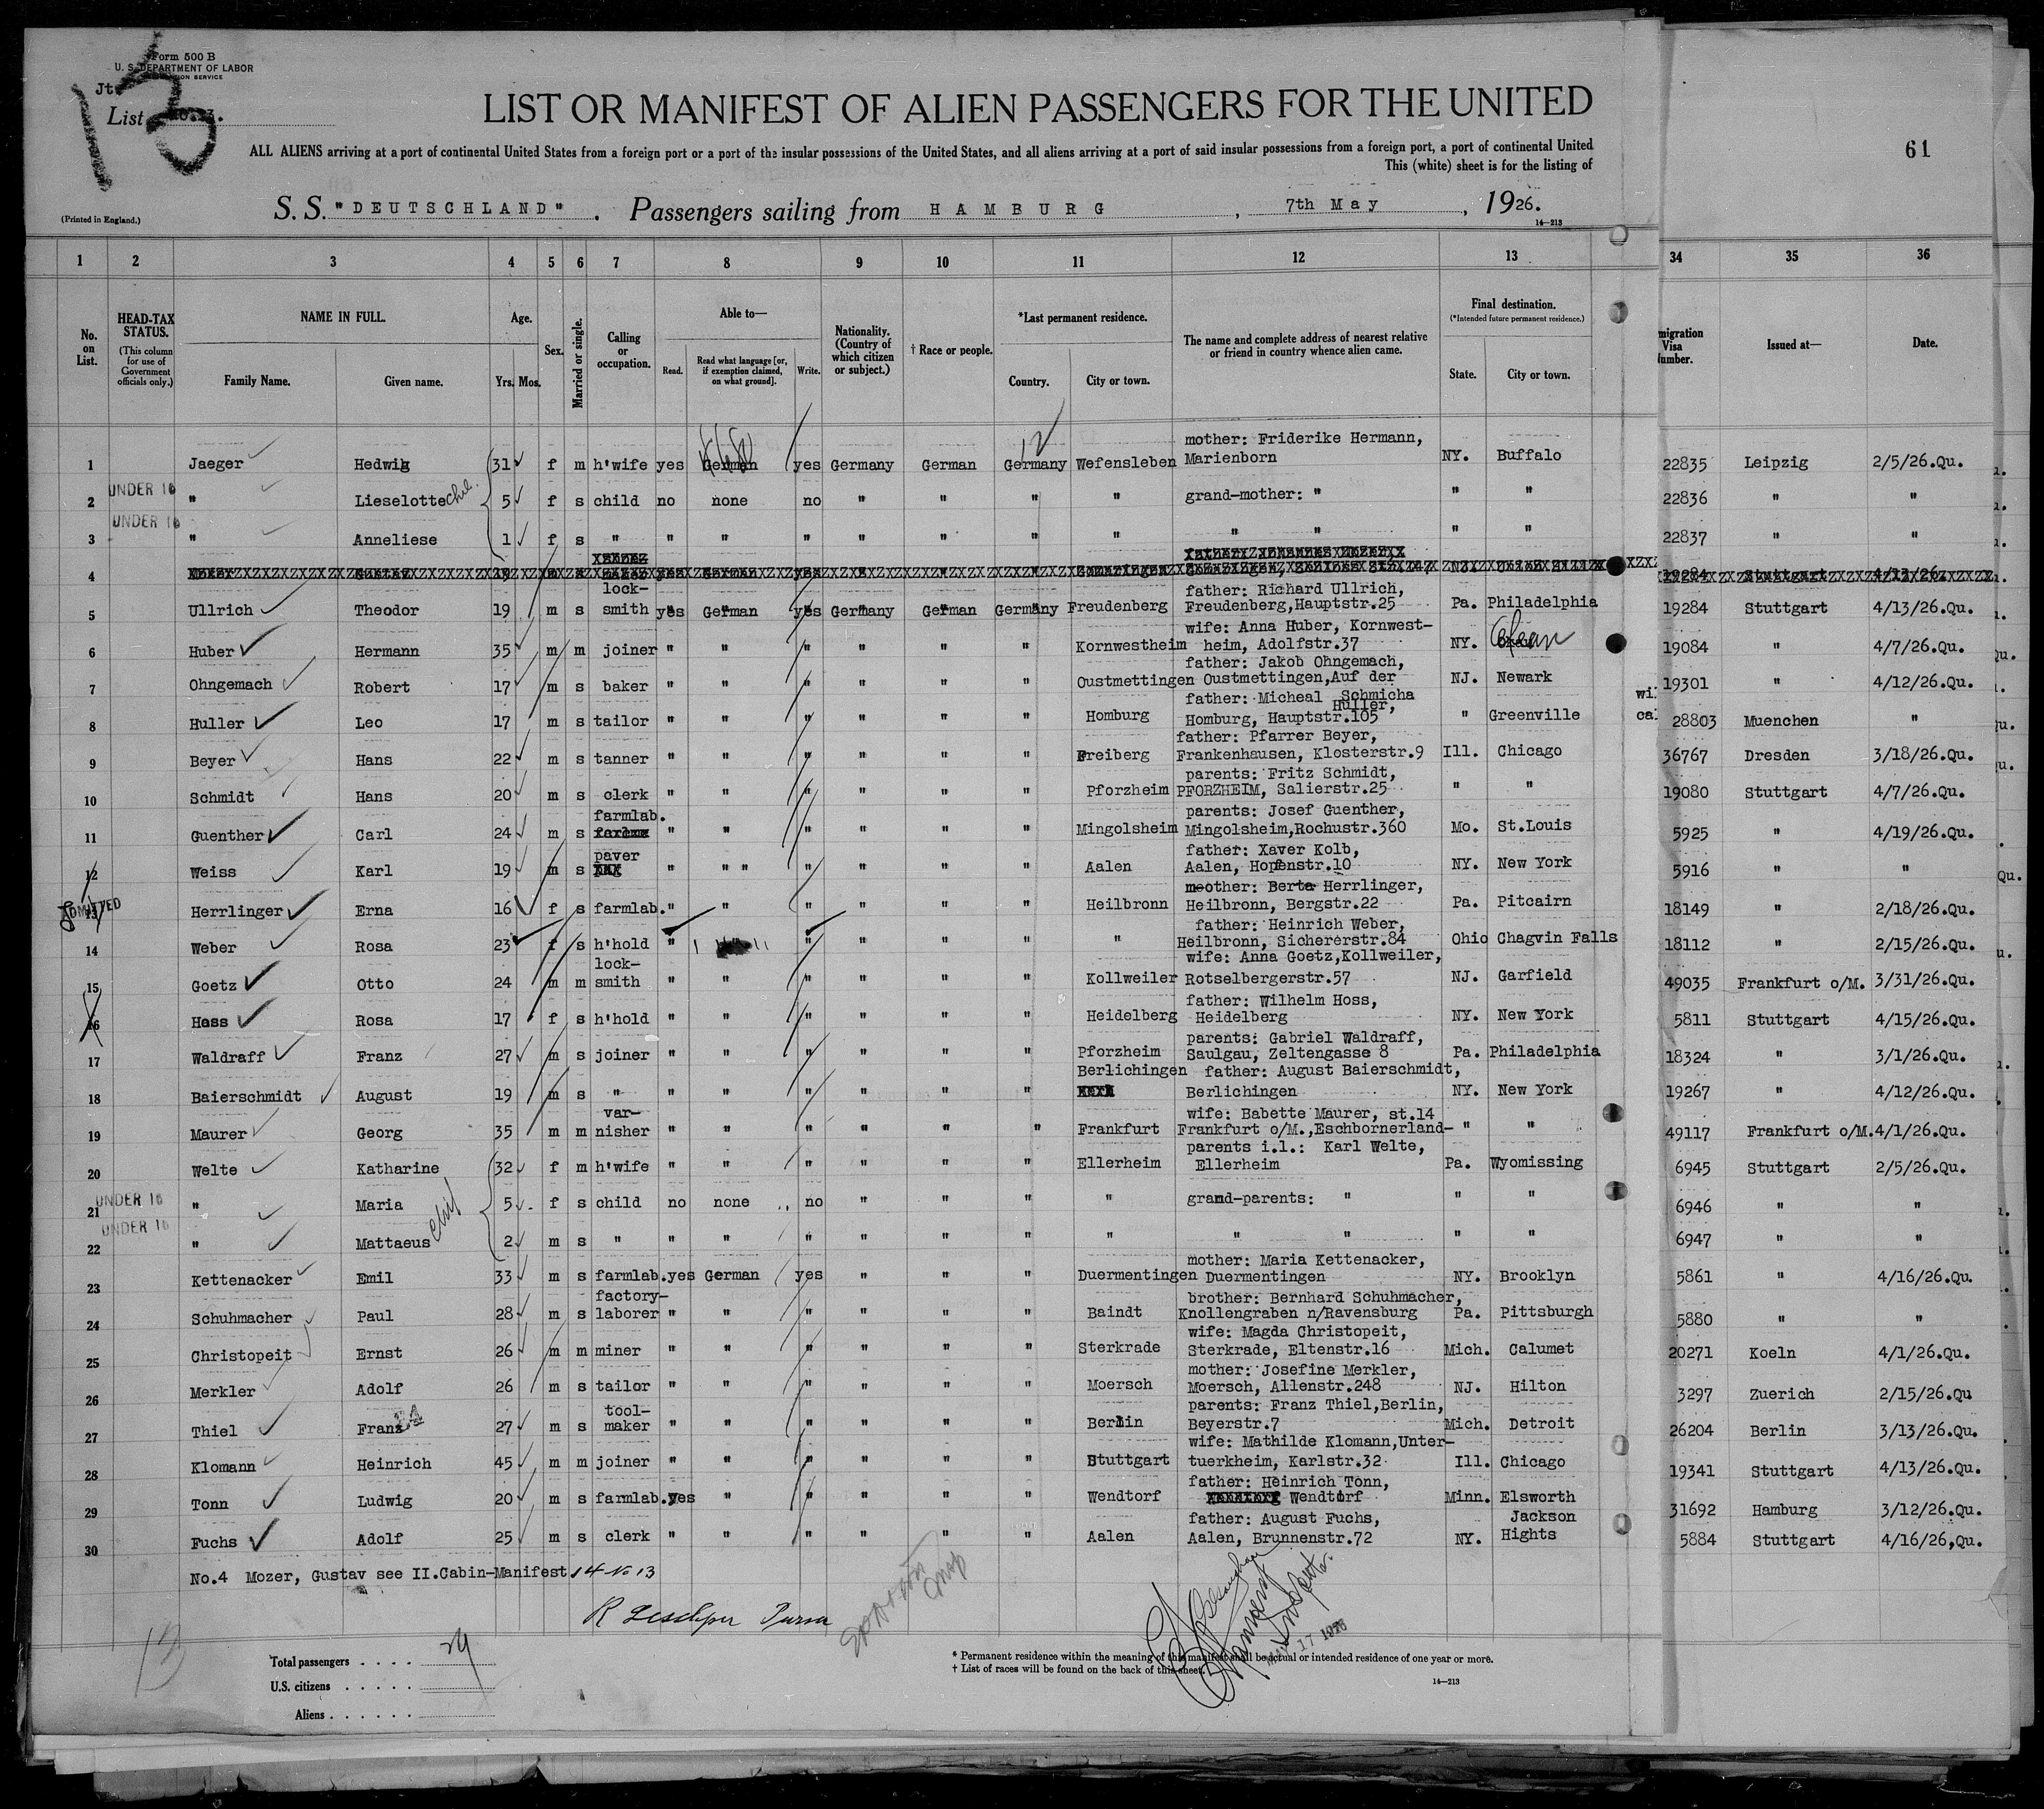 Form 500 B
U. S. DEPARTMENT OF LABOR
Jt.
List 13.
LIST OR MANIFEST OF ALIEN PASSENGERS FOR THE UNITED
ALL ALIENS arriving at a port of continental United States from a foreign port or a port of the insular possessions of the United States, and all aliens arriving at a port of said insular possessions from a foreign port, a port of continental United
This (white) sheet is for the listing of
61
(Printed in England.)
S. S. "DEUTSCHLAND". Passengers sailing from HAMBURG, 7th May, 1926.
14—213
1 2 3 4 5 6 7 8 9 10 11 12 13 34 35 36
No. on List.
HEAD-TAX STATUS. (This column for use of Government officials only.)
NAME IN FULL. Family Name. Given name.
Age. Yrs. Mos.
Sex.
Married or single.
Calling or occupation.
Able to— Read. Read what language [or, if exemption claimed, on what ground]. Write.
Nationality. (Country of which citizen or subject.)
† Race or people.
*Last permanent residence. Country. City or town.
The name and complete address of nearest relative or friend in country whence alien came.
Final destination. (*Intended future permanent residence.) State. City or town.
migration Visa Number. Issued at— Date.
1 Jaeger Hedwig 31 f m h'wife yes German yes Germany German Germany Wefensleben mother: Friderike Hermann, Marienborn NY. Buffalo 22835 Leipzig 2/5/26.Qu.
2 UNDER 16 " Lieselotte 5 f s child no none no " " " " grand-mother: " " " 22836 " "
3 UNDER 16 " Anneliese 1 f s " " " " " " " " " " " " 22837 " "
4
5 Ullrich Theodor 19 m s lock-smith yes German yes Germany German Germany Freudenberg father: Richard Ullrich, Freudenberg,Hauptstr.25 Pa. Philadelphia 19284 Stuttgart 4/13/26.Qu.
6 Huber Hermann 35 m m joiner " " " " " " Kornwestheim wife: Anna Huber, Kornwest-heim, Adolfstr.37 NY. Olean 19084 " 4/7/26.Qu.
7 Ohngemach Robert 17 m s baker " " " " " " Oustmettingen father: Jakob Ohngemach, Oustmettingen,Auf der Schmicha NJ. Newark 19301 " 4/12/26.Qu.
8 Huller Leo 17 m s tailor " " " " " " Homburg father: Micheal Huller, Homburg, Hauptstr.105 " Greenville 28803 Muenchen "
9 Beyer Hans 22 m s tanner " " " " " " Freiberg father: Pfarrer Beyer, Frankenhausen, Klosterstr.9 Ill. Chicago 36767 Dresden 3/18/26.Qu.
10 Schmidt Hans 20 m s clerk " " " " " " Pforzheim parents: Fritz Schmidt, PFORZHEIM, Salierstr.25 " " 19080 Stuttgart 4/7/26.Qu.
11 Guenther Carl 24 m s farmlab. " " " " " " Mingolsheim parents: Josef Guenther, Mingolsheim,Rochustr.360 Mo. St.Louis 5925 " 4/19/26.Qu.
12 Weiss Karl 19 m s paver " " " " " " " Aalen father: Xaver Kolb, Aalen, Hopfenstr.10 NY. New York 5916 " "
13 ADMITTED Herrlinger Erna 16 f s farmlab. " " " " " " Heilbronn mother: Berta Herrlinger, Heilbronn, Bergstr.22 Pa. Pitcairn 18149 " 2/18/26.Qu.
14 Weber Rosa 23 f s h'hold " " " " " " father: Heinrich Weber, Heilbronn, Sichererstr.84 Ohio Chagvin Falls 18112 " 2/15/26.Qu.
15 Goetz Otto 24 m m lock-smith " " " " " " Kollweiler wife: Anna Goetz,Kollweiler, Rotselbergerstr.57 NJ. Garfield 49035 Frankfurt o/M. 3/31/26.Qu.
16 Hoss Rosa 17 f s h'hold " " " " " " Heidelberg father: Wilhelm Hoss, Heidelberg NY. New York 5811 Stuttgart 4/15/26.Qu.
17 Waldraff Franz 27 m s joiner " " " " " " Pforzheim parents: Gabriel Waldraff, Saulgau, Zeltengasse 8 Pa. Philadelphia 18324 " 3/1/26.Qu.
18 Baierschmidt August 19 m s " " " " " " " Berlichingen father: August Baierschmidt, Berlichingen NY. New York 19267 " 4/12/26.Qu.
19 Maurer Georg 35 m m var-nisher " " " " " " Frankfurt wife: Babette Maurer, st.14 Frankfurt o/M.,Eschbornerland- " " 49117 Frankfurt o/M. 4/1/26.Qu.
20 Welte Katharine 32 f m h'wife " " " " " " Ellerheim parents i.l.: Karl Welte, Ellerheim Pa. Wyomissing 6945 Stuttgart 2/5/26.Qu.
21 UNDER 16 " Maria 5 f s child no none no " " " " grand-parents: " " " 6946 " "
22 UNDER 16 " Mattaeus 2 m s " " " " " " " " " " " " 6947 " "
23 Kettenacker Emil 33 m s farmlab. yes German yes " " " Duermentingen mother: Maria Kettenacker, Duermentingen NY. Brooklyn 5861 " 4/16/26.Qu.
24 Schuhmacher Paul 28 m s factory-laborer " " " " " " Baindt brother: Bernhard Schuhmacher, Knollengraben n/Ravensburg Pa. Pittsburgh 5880 " "
25 Christopeit Ernst 26 m m miner " " " " " " Sterkrade wife: Magda Christopeit, Sterkrade, Eltenstr.16 Mich. Calumet 20271 Koeln 4/1/26.Qu.
26 Merkler Adolf 26 m s tailor " " " " " " Moersch mother: Josefine Merkler, Moersch, Allenstr.248 NJ. Hilton 3297 Zuerich 2/15/26.Qu
27 Thiel Franz 27 m s tool-maker " " " " " " Berlin parents: Franz Thiel,Berlin, Beyerstr.7 Mich. Detroit 26204 Berlin 3/13/26.Qu.
28 Klomann Heinrich 45 m m joiner " " " " " " Stuttgart wife: Mathilde Klomann,Unter-tuerkheim, Karlstr.32 Ill. Chicago 19341 Stuttgart 4/13/26.Qu.
29 Tonn Ludwig 20 m s farmlab. yes " " " " " Wendtorf father: Heinrich Tonn, Wendtorf Minn. Elsworth 31692 Hamburg 3/12/26.Qu.
30 Fuchs Adolf 25 m s clerk " " " " " " Aalen father: August Fuchs, Aalen, Brunnenstr.72 NY. Jackson Hights 5884 Stuttgart 4/16/26,Qu.
No.4 Mozer, Gustav see II.Cabin-Manifest 14 No 13
Total passengers . . . . 29
U.S. citizens . . . . .
Aliens . . . . . .
17 1926
* Permanent residence within the meaning of this manifest shall be actual or intended residence of one year or more.
† List of races will be found on the back of this sheet.
14—213